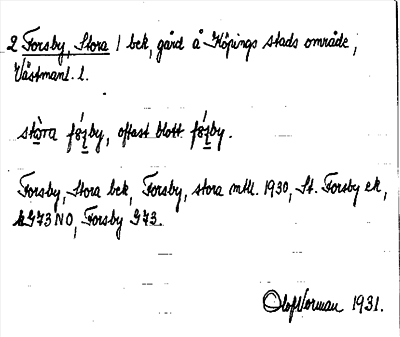 2 Forsby, Stora 1 bek, gård å Köpings stads område,
Västmanl. l.
stòra fǫ́ʐby, oftast blott fǫ́ʐby.
Forsby, Stora bek, Forsby, stora mtl. 1930, St. Forsby ek,
G73 NO, Forsby G73.
Olof Norman 1931.